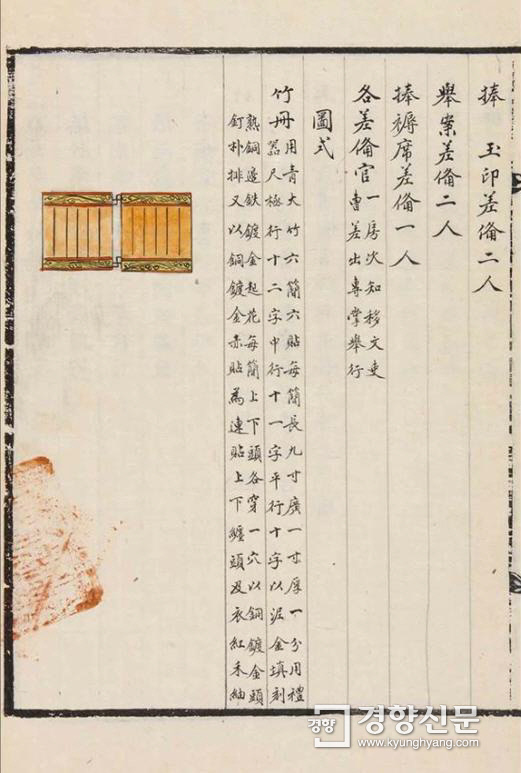 捧 玉印差備二人
舉案差備二人
捧褥席差備一人
各差備官 一房次知移文吏
曹差出專掌舉行
圖式
竹冊 用青大竹六簡六貼每簡長九寸廣一寸厚一分用禮
器尺極行十二字中行十一字平行十字以泥金填刻
熟銅邊鉄鍍金起花每簡上下頭各穿一穴以銅鍍金頭
釘朴排又以銅鍍金赤貼為連貼上下纏頭及衣紅禾紬
경향 경향신문
www.kyunghyang.com